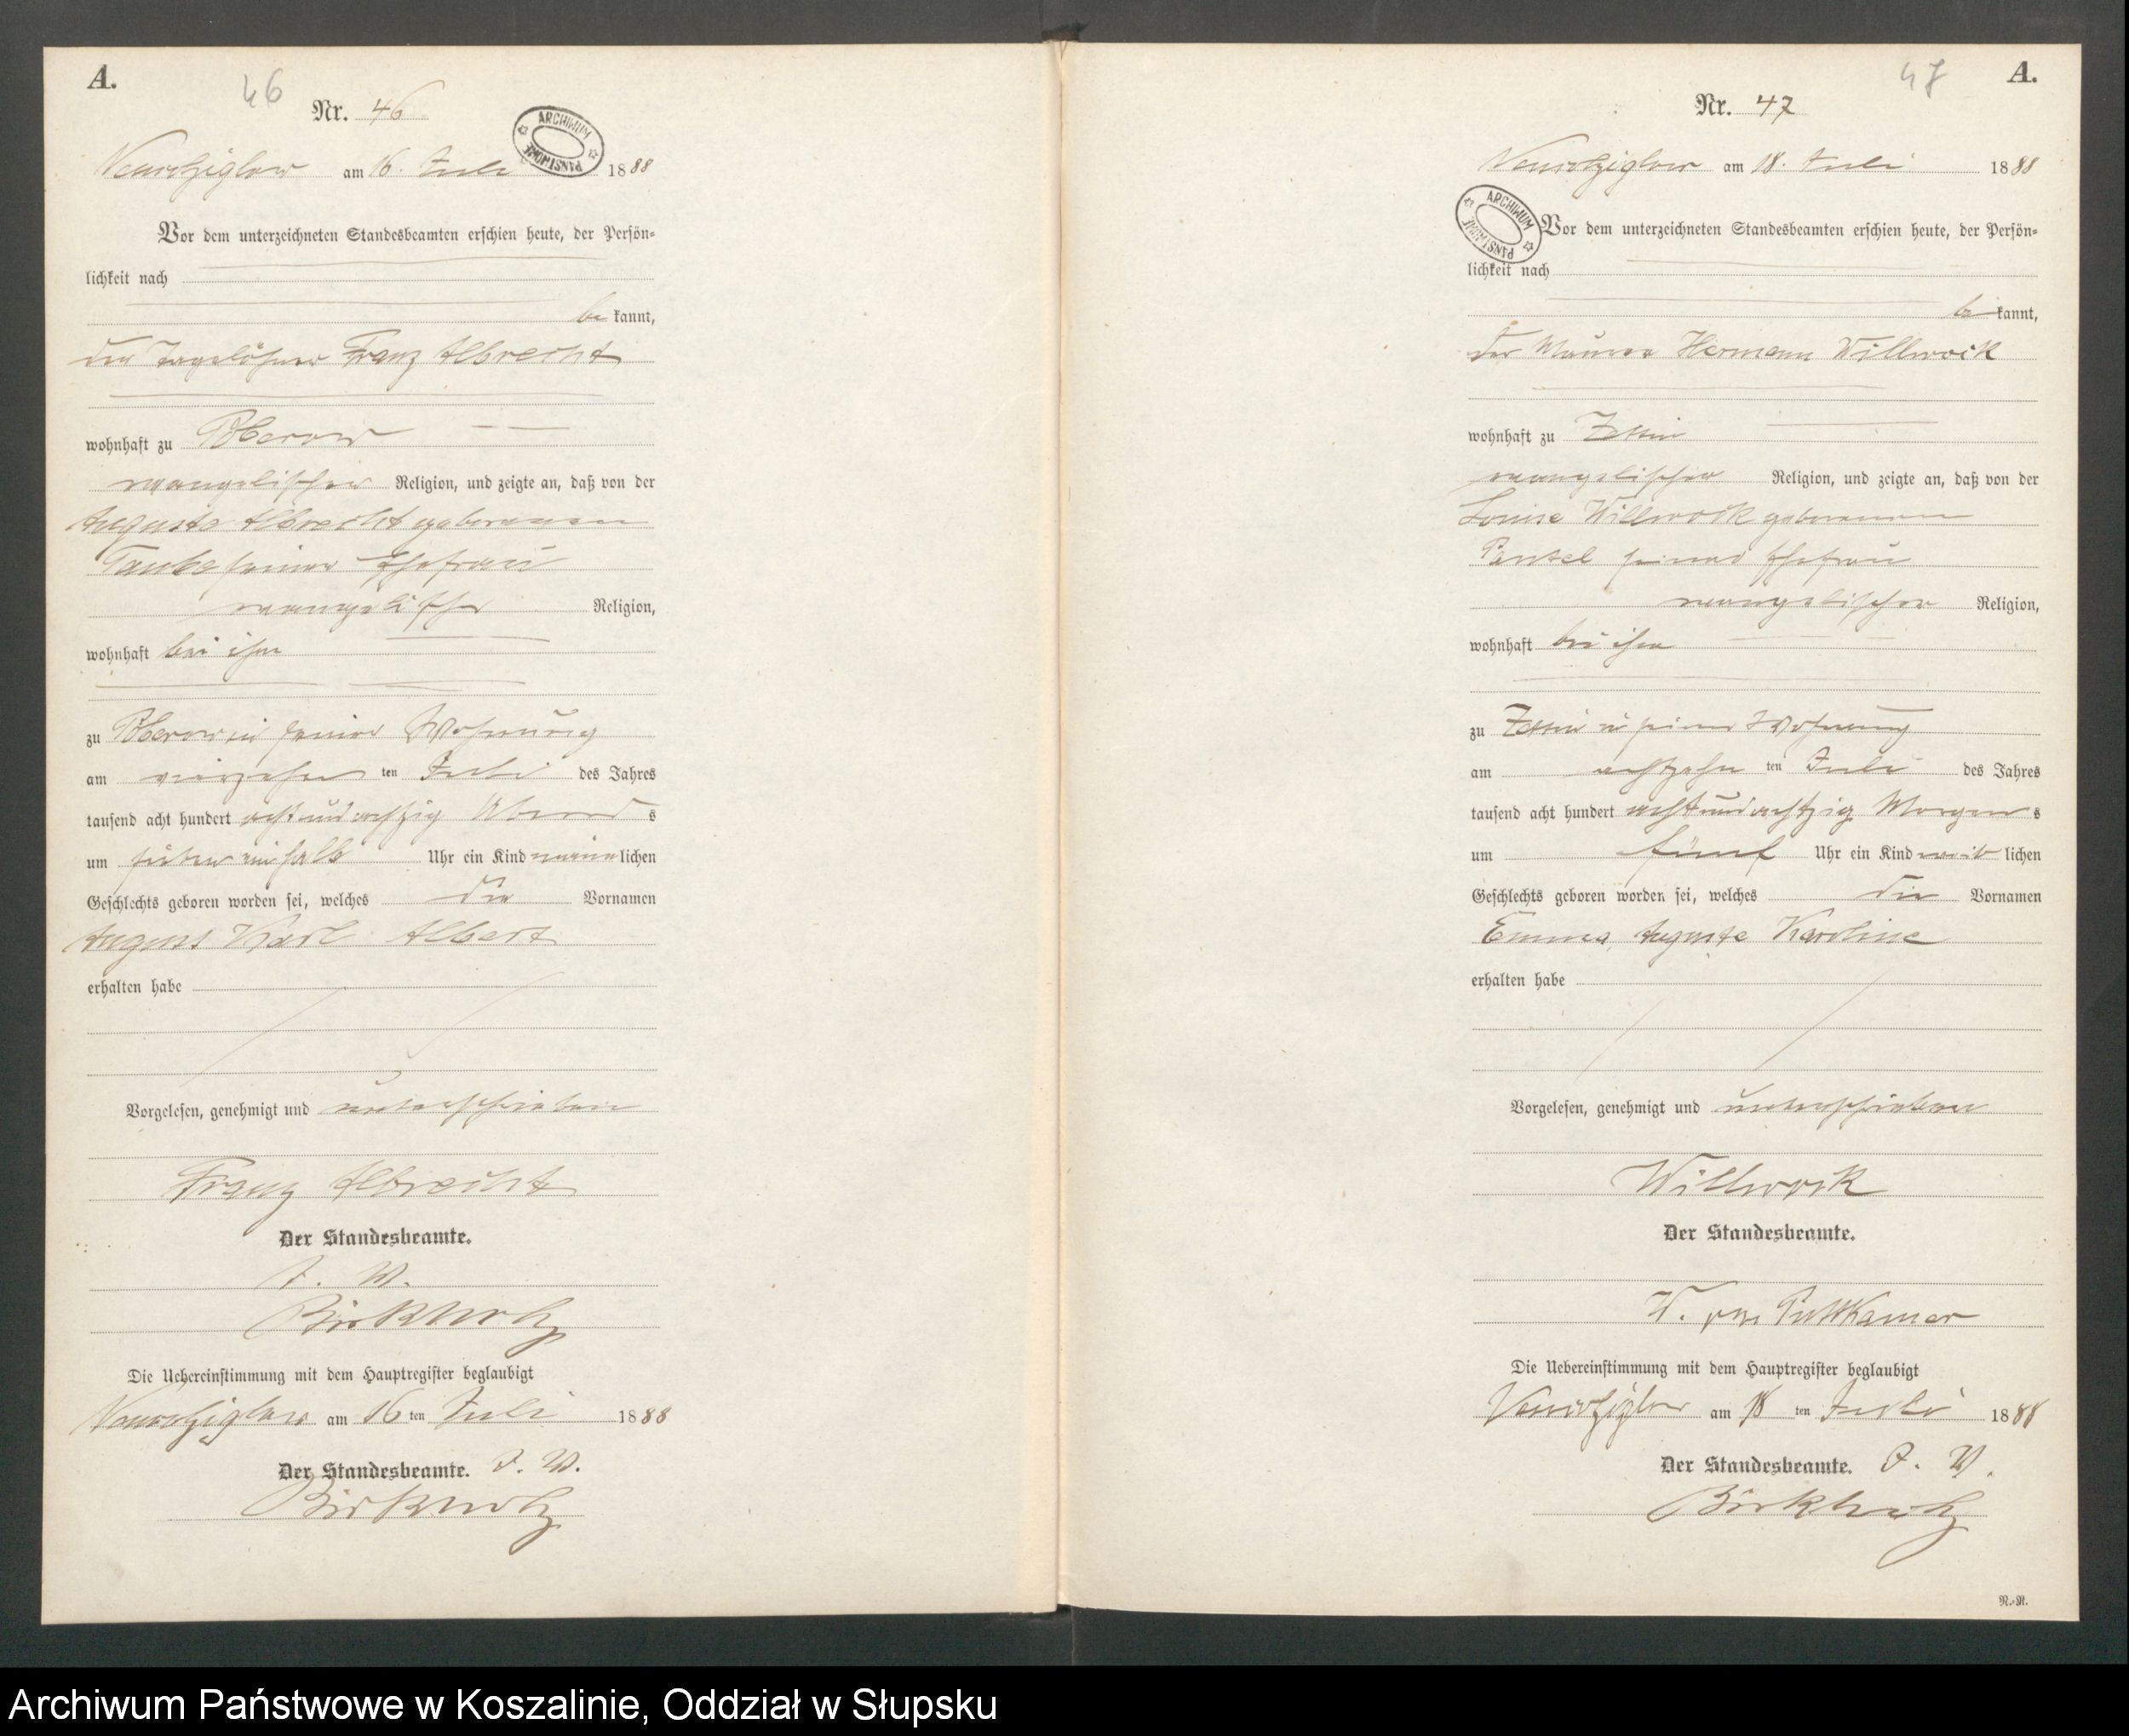 A.
46
Nr. 46
ARCHIWUM PAŃSTWOWE
am 16. Juli 1888
Vor dem unterzeichneten Standesbeamten erschien heute, der Persön-
lichkeit nach
be kannt,
der Tagelöhner Franz Albrecht
wohnhaft zu Poberow
evangelischer Religion, und zeigte an, daß von der
Auguste Albrecht geborenen
seiner Ehefrau
evangelischer Religion,
wohnhaft bei ihm
zu Poberow in seiner Wohnung
am vierzehn ten Juli des Jahres
tausend acht hundert achtundachtzig Abend s
um sieben einhalb Uhr ein Kind männlichen
Geschlechts geboren worden sei, welches die Vornamen
August Karl Albert
erhalten habe
Vorgelesen, genehmigt und unterschrieben
Franz Albrecht
Der Standesbeamte.
J. V.
Birkholz
Die Uebereinstimmung mit dem Hauptregister beglaubigt
am 16 ten Juli 1888
Der Standesbeamte. J. V.
Birkholz
47 A.
Nr. 47
ARCHIWUM PAŃSTWOWE
am 18. Juli 1888
Vor dem unterzeichneten Standesbeamten erschien heute, der Persön-
lichkeit nach
be kannt,
der Maurer Hermann Willwock
wohnhaft zu Zettin
evangelischer Religion, und zeigte an, daß von der
Louise Willwock geborenen
Pantzel seiner Ehefrau
evangelischer Religion,
wohnhaft bei ihm
zu Zettin in seiner Wohnung
am achtzehn ten Juli des Jahres
tausend acht hundert achtundachtzig Morgen s
um fünf Uhr ein Kind weib lichen
Geschlechts geboren worden sei, welches die Vornamen
Emma, Auguste Karoline
erhalten habe
Vorgelesen, genehmigt und unterschrieben
Willwock
Der Standesbeamte.
W. von Puttkamer
Die Uebereinstimmung mit dem Hauptregister beglaubigt
am 18 ten Juli 1888
Der Standesbeamte. J. V.
Birkholz
N.-R.
Archiwum Państwowe w Koszalinie, Oddział w Słupsku